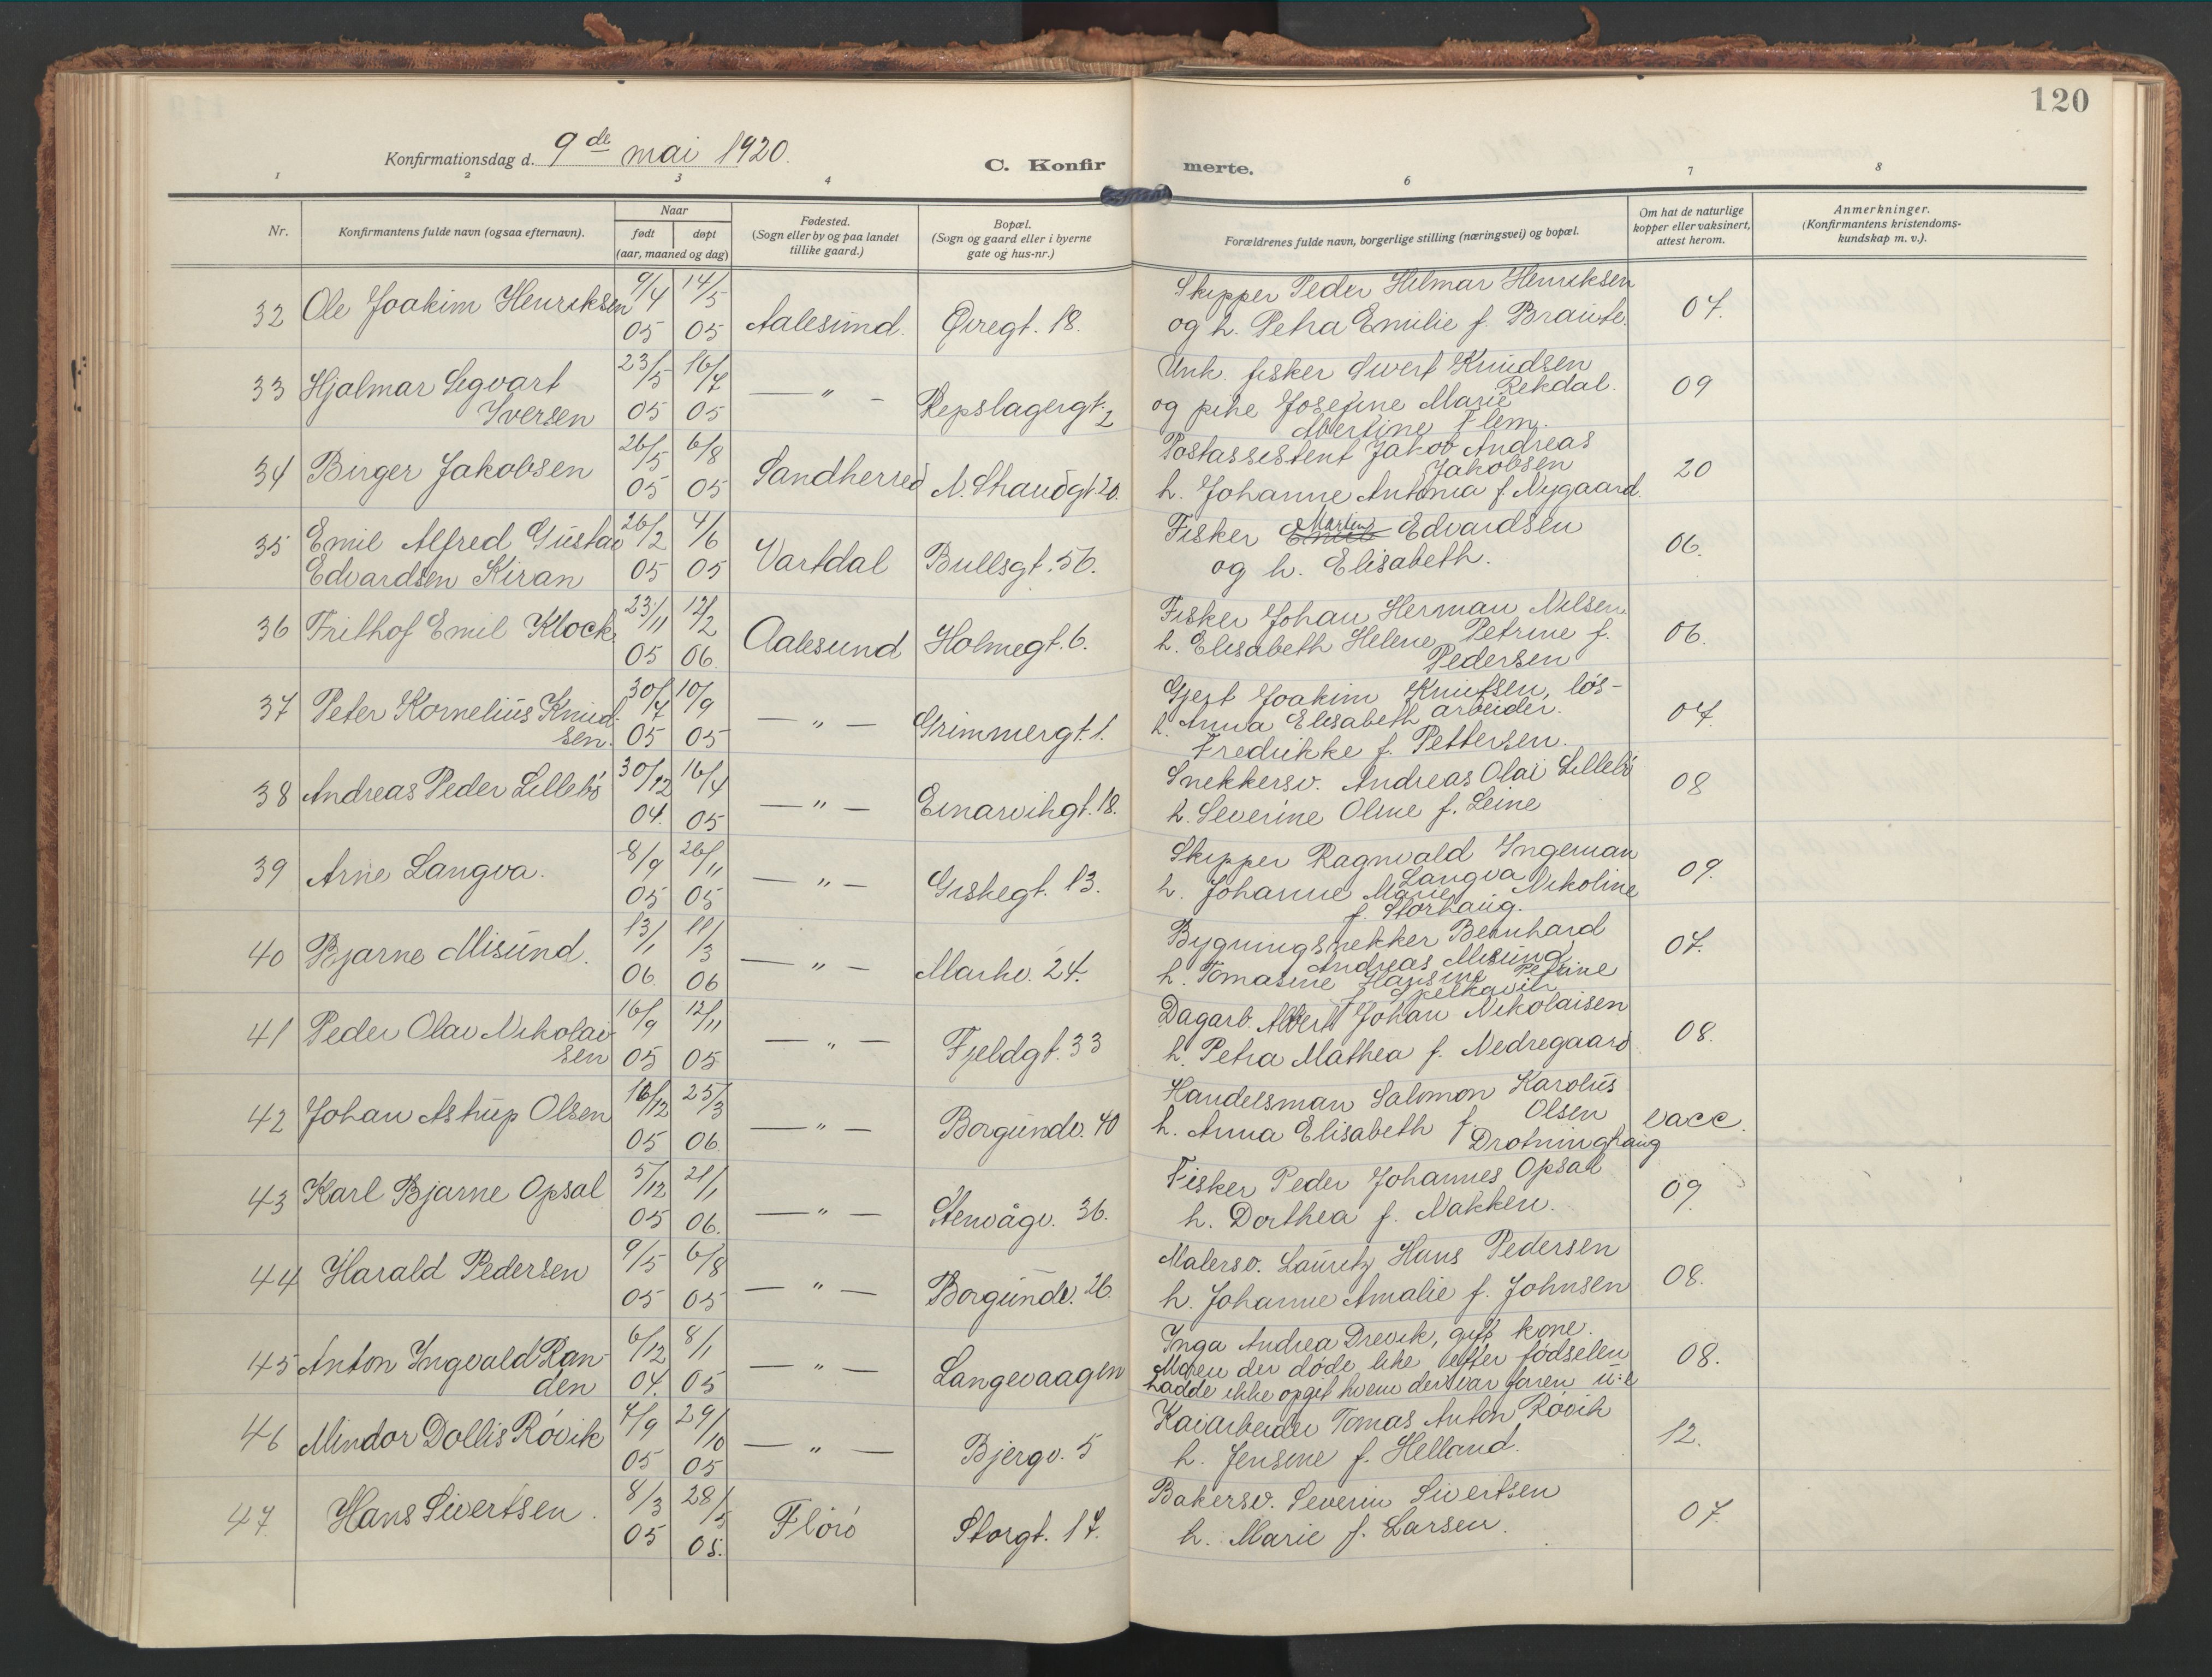 120
Konfirmationsdag d. 9de mai 1920.
C. Konfir merte.
1 2 3 4 6 7 8
Nr.
Konfirmantens fulde navn (ogsaa efternavn).
Naar
født døpt
(aar, maaned og dag)
Fødested.
(Sogn eller by og paa landet
tillike gaard.)
Bopæl.
(Sogn og gaard eller i byerne
gate og hus-nr.)
Forældrenes fulde navn, borgerlige stilling (næringsvei) og bopæl.
Om hat de naturlige
kopper eller vaksinert,
attest herom.
Anmerkninger.
(Konfirmantens kristendoms-
kundskap m. v.).
32 Ole Joakim Henriksen 9/4 05 14/5 05 Aalesund. Øvregt. 18.
Skipper Peder Hilmar Henriksen
og h. Petra Emilie f. Braute. 07.
33 Hjalmar Segvart
Iversen 23/5 05 16/7 05 — " - Repslagergt. 2
Unk. fisker Sivert Knudsen
Rekdal.
og pike Josefine Marie
Albertine Flem. 09
34 Birger Jakobsen 26/5 05 6/8 05 Sandherred N. Strandgt. 20.
Postassistent Jakob Andreas
Jakobsen
h. Johanne Antonia f. Nygaard. 20
35 Emil Alfred Gustav
Edvardsen Kiran 26/2 05 4/6 05 Vartdal Bullsgt. 56.
Fisker Martin Edvardsen
og h. Elisabeth. 06.
36 Frithof Emil Klock 23/11 05 12/2 06. Aalesund Holmegt. 6.
Fisker Johan Herman Nilsen
h. Elisabeth Helene Petrine f.
Pedersen 06.
37 Peter Kornelius Knud-
sen. 30/7 05 10/9 05 — " — Grimmergt. 1.
Gjert Joakim Knutsen, løs-
arbeider.
h. Anna Elisabeth
Fredrikke f. Pettersen. 07.
38 Andreas Peder Lillebø 30/12 04. 16/4 05 — " — Einarvikgt. 18.
Snekkersv. Andreas Olai Lillebø
h. Severine Oline f. Leine 08
39 Arne Langva. 8/9 05 26/11 05 — " — Giskegt. 13.
Skipper Ragnvald Ingeman
Langva
h. Johanne Marie Nikoline
f. Storhaug. 09.
40 Bjarne Misund. 13/1 06. 11/3 06 — " — Markv. 24.
Bygningsnekker Bernhard
Andreas Misund
h. Tomasine Hansine Petrine
f. Spelkavik 07.
41 Peder Olav Nikolai-
sen 16/9 05 12/11 05 — " — Fjeldgt. 33
Dagarb. Albert Johan Nikolaisen
h. Petra Mathea f. Nedregaard 08.
42 Johan Astrup Olsen 16/12 05 25/3 06. — " — Borgundv. 40
Handelsman Salomon Karolus
Olsen
h. Anna Elisabeth f.
Drotninghaug vacc.
43 Karl Bjarne Opsal 5/12 05 21/1 06. — " — Stenvågv. 36.
Fisker Peder Johannes Opsal
h. Dorthea f. Nakken. 09.
44 Harald Pedersen 9/5 05 6/8 05 — " — Borgundv. 26.
Malersv. Lauritz Hans Pedersen
h. Johanne Amalie f. Johnsen 08.
45 Anton Ingvald Ran-
den 6/12 04. 8/1 05 — " — Langevaagen
Inga Andrea Drevik, gift kone.
Moren der døde like efter fødselen
hadde ikke opgit hvem der var faren u:e 08.
46 Mindor Dollis Røvik 7/9 05 29/10 05 — " — Bjergv. 5
Kaiarbeider Tomas Anton Røvik
h. Jensine f. Helland. 12.
47. Hans Sivertsen. 8/3 05 28/5 05. Florø Storgt. 17.
Bakersv. Severin Sivertsen
h. Marie f. Larsen. 07.